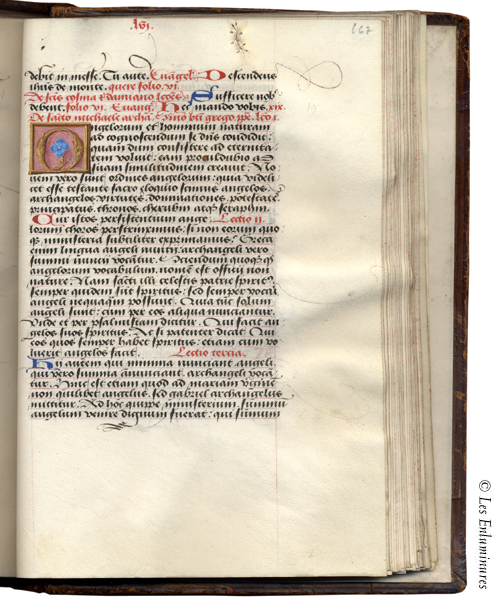 lvi.
167
debit in messe. Tu aute. Euāgel. Descendens
ihūs de monte. quere folio vi.
De scīs cosma & damiano lcōs. Sufficere nob
debent. folio vi. Euang. Hec mando vobis. xix.
De sācto michaele archā. bti grego. pp. lco i.
ngelorum et hominum naturam
ad cognoscendum se deus condidit:
quam dum consistere ad eternita
tem voluit: eam proculdubio ad
suam similitudinem creauit. No
uem vero sunt ordines angelorum: quia videli
cet esse testante sacro eloquio scimus angelos.
archangelos. virtutes. dominationes. potestates.
principatus. thronos. cherubin atqꝫ seraphin.
Cur istos persistentium ange Lectio ii.
lorum choros perstrinximus: si non eorum quo
qꝫ ministeria subtiliter exprimamus? Greca
enim lingua angeli nuntii: archangeli vero
summi nuncii vocātur. Sciendum quoqꝫ qꝫ
angelorum vocabulum. nomē est officij non
nature. Nam sācti illi celestis patrie spirit9.
semper quidem sūt spiritus: sed semper vocari
angeli nequaqͫ possunt. Quia tūc solum
angeli sunt: cum per eos aliqua nunciantur.
Vnde et per psalmistam dicitur. Qui facit an
gelos suos spiritus. Ac si patenter dicat. Qui
eos quos semper habet spiritus: etiam cum vo
luerit angelos facit. Lectio tercia.
Hij autem qui minima nunciant angeli:
qui vero summa annunciant. archangeli vocā
tur. Hinc est etiam quod ad mariam virginē
non quilibet angelus. sed gabriel archangelus
mittitur. Ad hoc quippe ministerium summū
angelum venire dignum fuerat: qui summum
© Les Enluminures